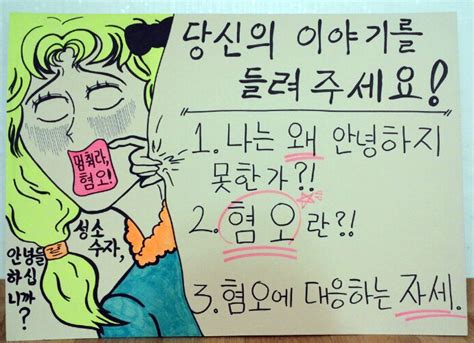 당신의 이야기를
들려주세요!
1. 나는 왜 안녕하지
못한가?!
2. 혐오란?!
3. 혐오에 대응하는 자세.
멈춰라,
혐오!
성소
수자,
안녕들
하십
니까?